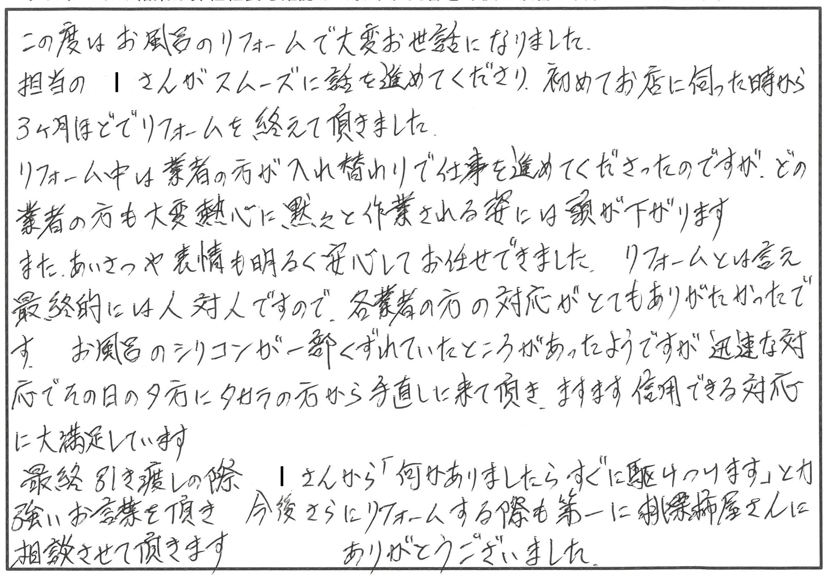 この度はお風呂のリフォームで大変お世話になりました.
担当の I さんがスムーズに話を進めてくださり、初めてお店に伺った時から
3ヶ月ほどでリフォームを終えて頂きました.
リフォーム中は業者の方が入れ替わりで仕事を進めてくださったのですが、どの
業者の方も大変熱心に黙々と作業される姿には頭が下がります
また、あいさつや表情も明るく安心してお任せできました. リフォームとは言え
最終的には人対人ですので、各業者の方の対応がとてもありがたかったで
す. お風呂のシリコンが一部くずれていたところがあったようですが迅速な対
応でその日の夕方にタカラの方から手直しに来て頂き、ますます信用できる対応
に大満足しています
最終引き渡しの際 I さんから「何かありましたらすぐに駆けつけます」と力
強いお言葉を頂き 今後さらにリフォームする際も第一に
相談させて頂きます ありがとうございました.